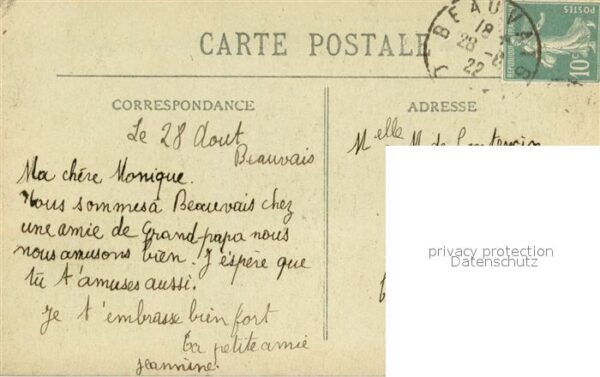 CARTE POSTALE
BEAUVAIS
18
28 -8
22
POSTES
REPUBLIQUE
10c
CORRESPONDANCE
ADRESSE
Le 28 Aout
Beauvais
Ma chère Monique.
Nous sommes à Beauvais chez
une amie de Grand-papa nous
nous amusons bien. J'éspère que
tu t'amuses aussi.
Je t'embrasse bien fort
ta petite amie
jeannine.
Melle M. de
privacy protection
Datenschutz